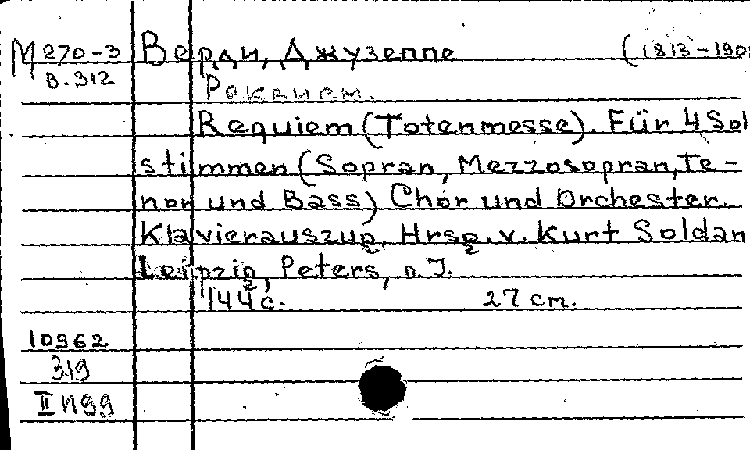 М 270-3 Верди, Джузеппе (1813-190
В.312 Реквием.
Requiem (Totenmesse). Für 4 Sol
stimmen (Sopran, Mezzosopran, Te-
nor und Bass) Chor und Orchester.
Klavierauszug. Hrsg. v. Kurt Soldan
Leipzig, Peters, o. J.
144 c. 27 cm.
10962
319
II н99